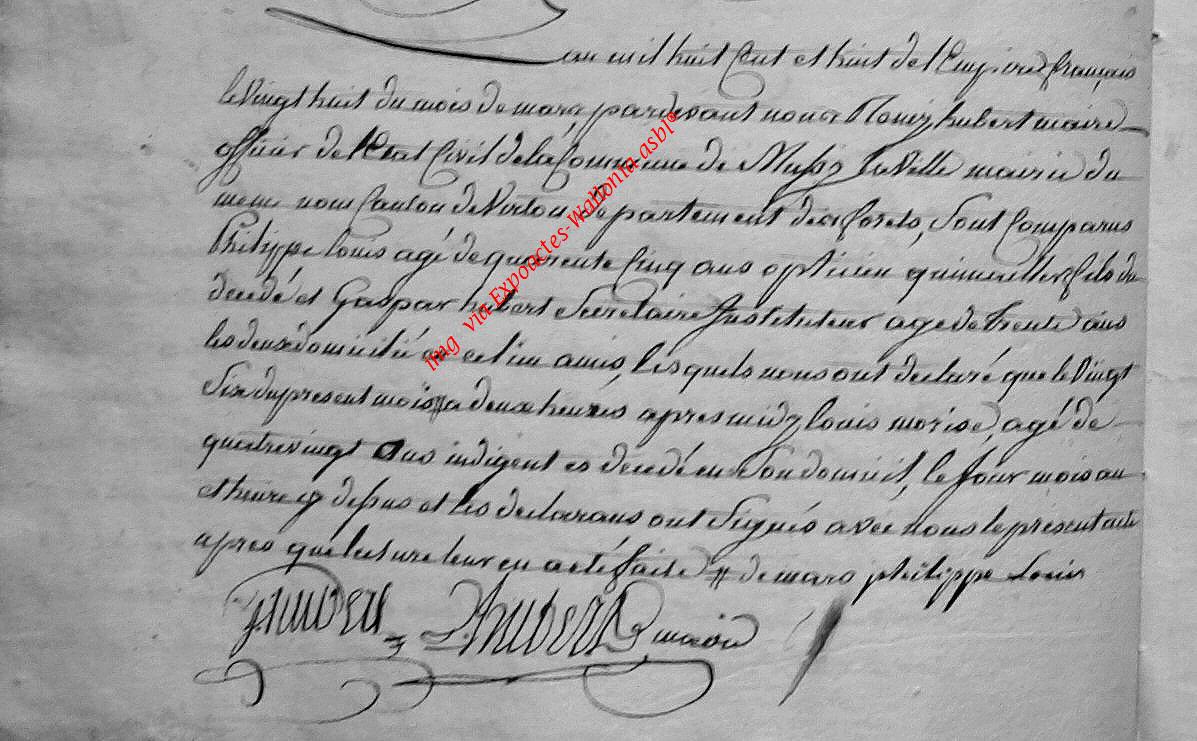 an mil huit Cent et huit de l'Empire français
le Vingt huit du mois de mars pardevant nous hubert maire
officier de l'Etat Civil de la Commune de Mussy la Ville mairie du
meme nom Canton de Virton departement des forets, sont Comparus
Philippe louis agé de quarente Cinq ans opticien fils du
decedé et Gaspar hubert Secretaire Instituteur age de trente ans
les deux domicilié amis, lesquels nous ont declaré que le Vingt
Six du present mois # a deux heures apres midy louis morise, agé de
quatrevingt Ans indigent es decedé en son domicil, le jour mois an
et heure cy dessus et les declarans ont Signés avec nous le présent acte
apres que lecture leur en a eté faite # de mars philippe Louis
hubert maire
img via Expoactes-Wallonia asbl°